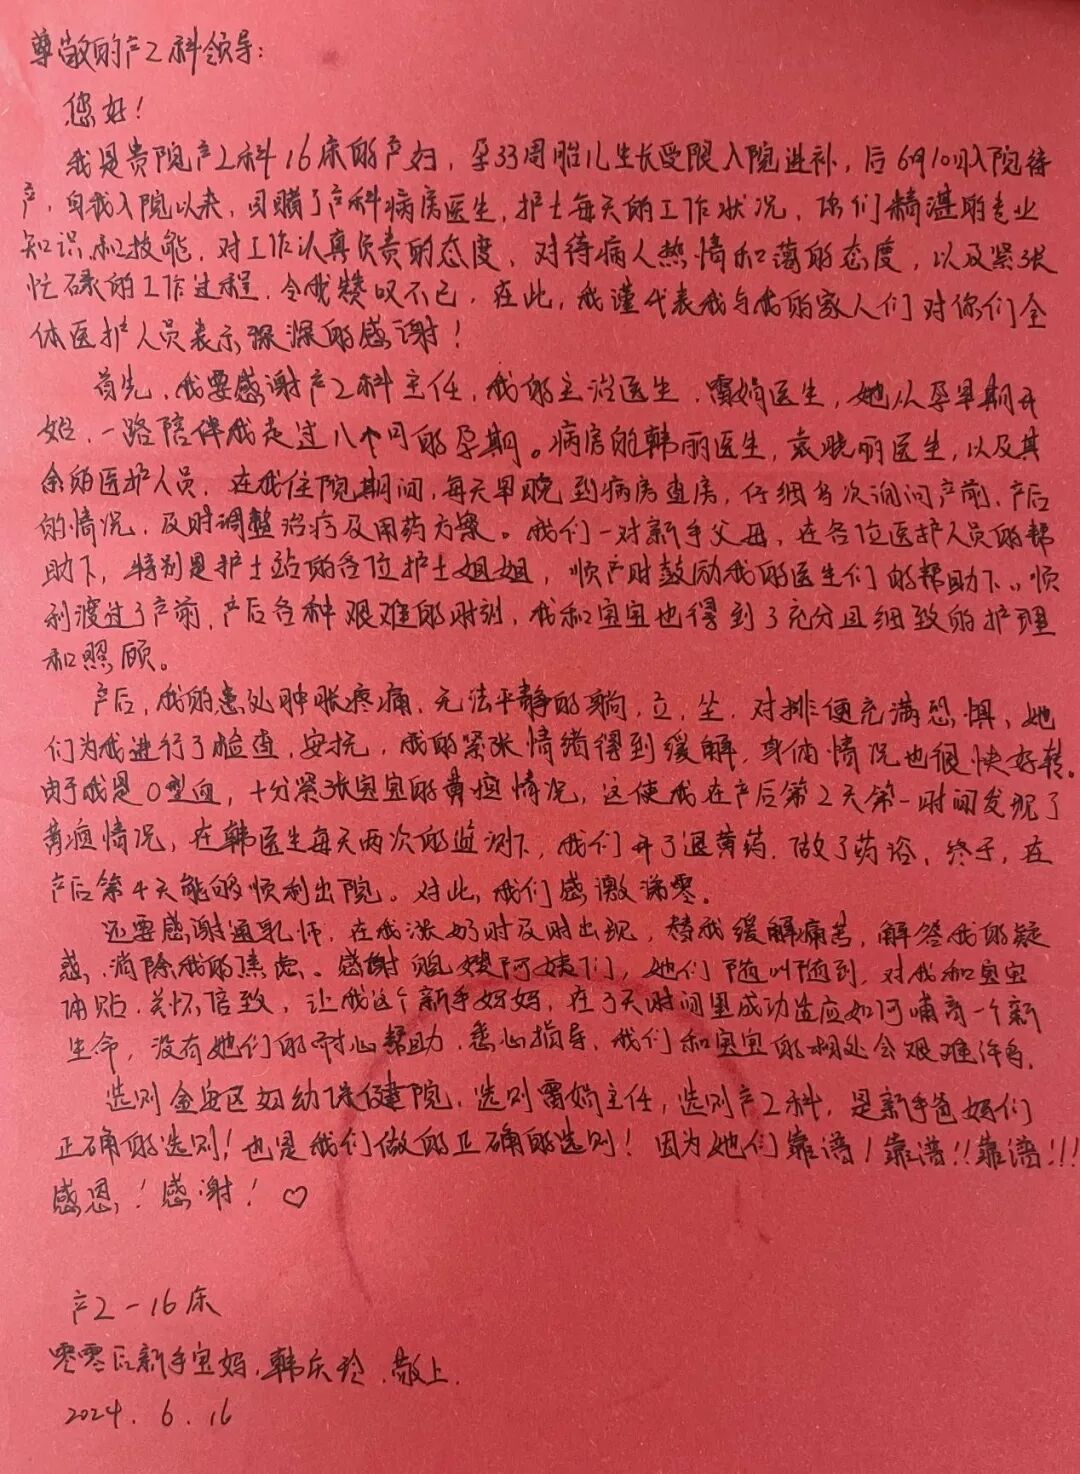 尊敬的产2科领导:
您好!
我是贵院产2科16床的产妇,孕33周胎儿生长受限入院进补,后6月10日入院待
产,自我入院以来,目睹了产科病房医生,护士每天的工作状况,你们精湛的专业
知识和技能,对工作认真负责的态度,对待病人热情和蔼的态度,以及紧张
忙碌的工作过程,令我赞叹不已,在此,我谨代表我与我的家人们对你们全
体医护人员表示深深的感谢!
首先,我要感谢产2科主任,我的主治医生,雷娟医生,她从孕早期开
始,一路陪伴我走过八个月的孕期。病房的韩丽医生,袁晓丽医生,以及其
余的医护人员,在我住院期间,每天早晚到病房查房,仔细多次询问产前、产后
的情况,及时调整治疗及用药方案。我们一对新手父母,在各位医护人员的帮
助下,特别是护士站的各位护士姐姐,顺产时鼓励我的医生们的帮助下,顺
利渡过了产前、产后各种艰难的时刻,我和宝宝也得到了充分且细致的护理
和照顾。
产后,我的患处肿胀疼痛,无法平静的躺,立,坐,对排便充满恐惧,她
们为我进行了检查,安抚,我的紧张情绪得到缓解,身体情况也很快好转。
由于我是O型血,十分紧张宝宝的黄疸情况,这使我在产后第2天第一时间发现了
黄疸情况,在韩医生每天两次的监测下,我们开了退黄药,做了药浴,终于,在
产后第4天能够顺利出院。对此,我们感激涕零。
还要感谢通乳师,在我涨奶时及时出现,替我缓解痛苦,解答我的疑
惑,消除我的焦虑。感谢月嫂阿姨们,她们随叫随到,对我和宝宝
体贴,关怀倍致,让我这个新手妈妈,在3天时间里成功适应如何哺育一个新
生命,没有她们的耐心帮助,悉心指导,我们和宝宝的相处会艰难许多,
选则金安区妇幼保健院,选则雷娟主任,选则产2科,是新手爸妈们
正确的选则!也是我们做的正确的选则!因为她们靠谱!靠谱!!靠谱!!!
感恩!感谢!♡
产2-16床
零零后新手宝妈,韩庆玲,敬上.
2024.6.16